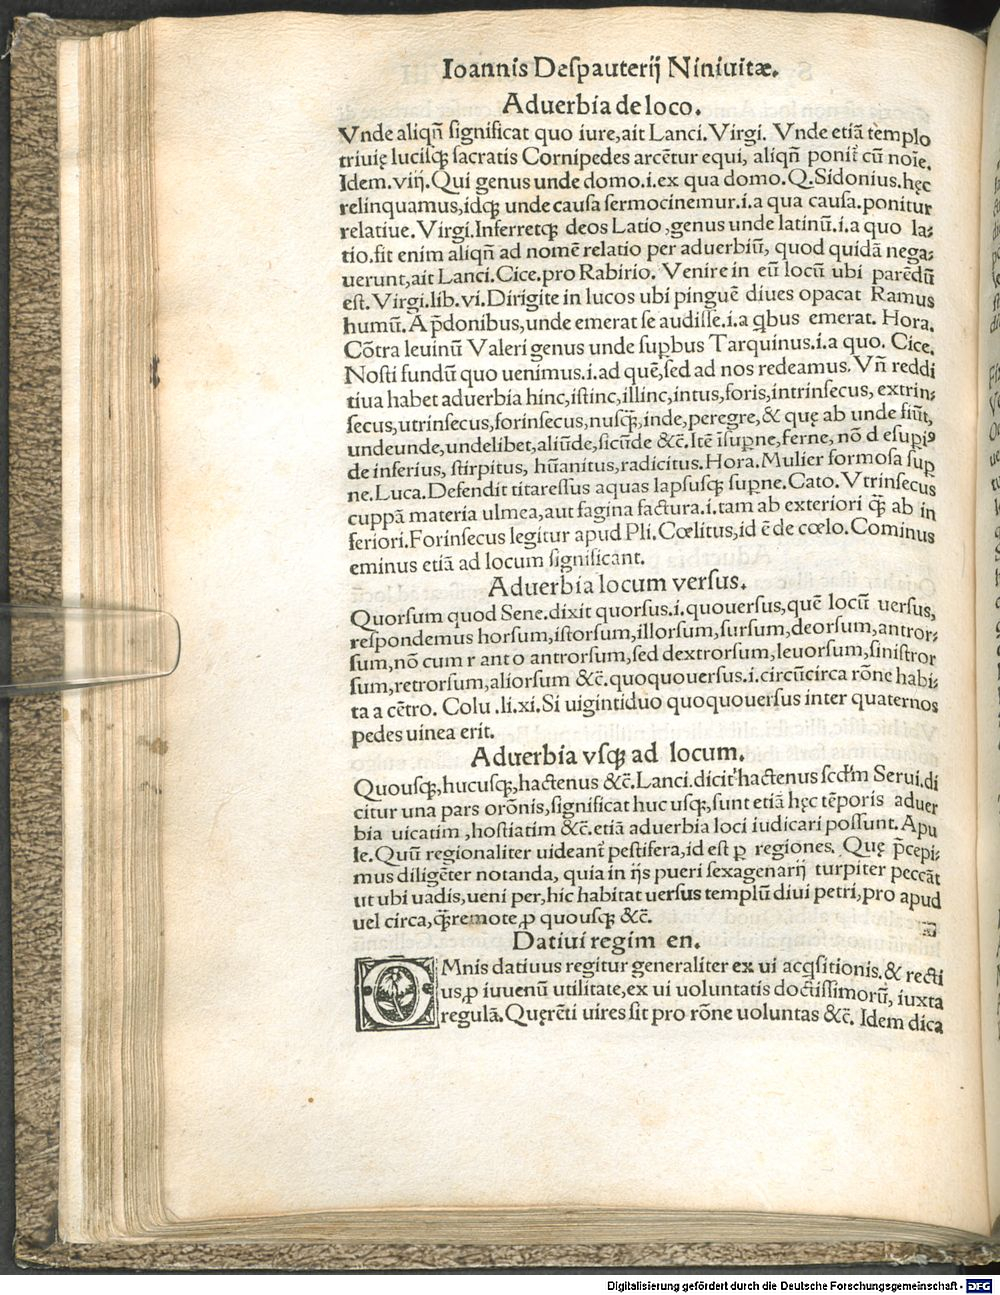 Ioannis Despauterij Niniuitæ.
Aduerbia de loco.
Vnde aliqñ significat quo iure,ait Lanci. Virgi. Vnde etiã templo
triuię lucisq; sacratis Cornipedes arcẽtur equi, aliqñ ponit̃ cũ noĩe.
Idem.viij. Qui genus unde domo.i.ex qua domo. Q. Sidonius. hęc
relinquamus,idq; unde causa sermocinemur.i.a qua causa.ponitur
relatiue. Virgi. Inferretq; deos Latio ,genus unde latinũ.i.a quo la⸗
tio.fit enim aliqñ ad nomẽ relatio per aduerbiũ, quod quidã nega⸗
uerunt,ait Lanci. Cice. pro Rabirio. Venire in eũ locũ ubi parẽdũ
est. Virgi.lib.vi. Dirigite in lucos ubi pinguẽ diues opacat Ramus
humũ. A p̃donibus,unde emerat se audisse.i.a qbus emerat. Hora.
Cõtra leuinũ Valeri genus unde suꝑbus Tarquinus.i.a quo. Cice.
Nosti fundũ quo uenimus.i.ad quẽ,sed ad nos redeamus. Vñ reddi
tiua habet aduerbia hinc,istinc,illinc,intus,foris,intrinsecus, extrin⸗
secus,utrinsecus,forinsecus,nusq̃,inde,peregre,& quę ab unde fiũt,
undeunde,undelibet,aliũde,sicũde &c̃. Itẽ ĩsuꝑne,ferne, nõ d esuꝑiꝰ
de inferius, stirpitus, hũanitus,radicitus. Hora. Mulier formosa suꝑ
ne. Luca. Defendit titaressus aquas lapsusq; suꝑne. Cato. Vtrinsecus
cuppã materia ulmea,aut fagina factura.i.tam ab exteriori q̃ ab in
feriori. Forinsecus legitur apud Pli. Cœlitus,id ẽ de cœlo. Cominus
eminus etiã ad locum significant.
Aduerbia locum versus.
Quorsum quod Sene.dixit quorsus.i.quouersus,quẽ locũ uersus,
respondemus horsum,istorsum,illorsum,sursum,deorsum,antror⸗
sum,nõ cum r ant o antrorsum,sed dextrorsum,leuorsum,sinistror
sum,retrorsum,aliorsum &c̃.quoquouersus.i.circũcirca rõne habi⸗
ta a cẽtro. Colu .li.xi. Si uigintiduo quoquouersus inter quaternos
pedes uinea erit.
Aduerbia vsq; ad locum.
Quousq;,hucusq;,hactenus &c̃. Lanci.dicit hactenus scd̃m Serui.di
citur una pars orõnis,significat huc usq;,sunt etiã hęc tẽporis aduer
bia uicatim ,hostiatim &c̃.etiã aduerbia loci iudicari possunt. Apu
le. Quũ regionaliter uideant̃ pestifera,id est ꝑ regiones. Quę p̃cepi⸗
mus diligẽter notanda, quia in ijs pueri sexagenarij turpiter peccãt
ut ubi uadis,ueni per,hic habitat uersus templũ diui petri,pro apud
uel circa,q̃remote,ꝓ quousq; &c̃.
Datiui regim en.
OMnis datiuus regitur generaliter ex ui acqsitionis.& recti
us,ꝓ iuuenũ utilitate,ex ui uoluntatis doctissimorũ, iuxta
regulã. Quęrẽti uires sit pro rõne uoluntas &c̃. Idem dica
Digitalisierung gefördert durch die Deutsche Forschungsgemeinschaft - DFG